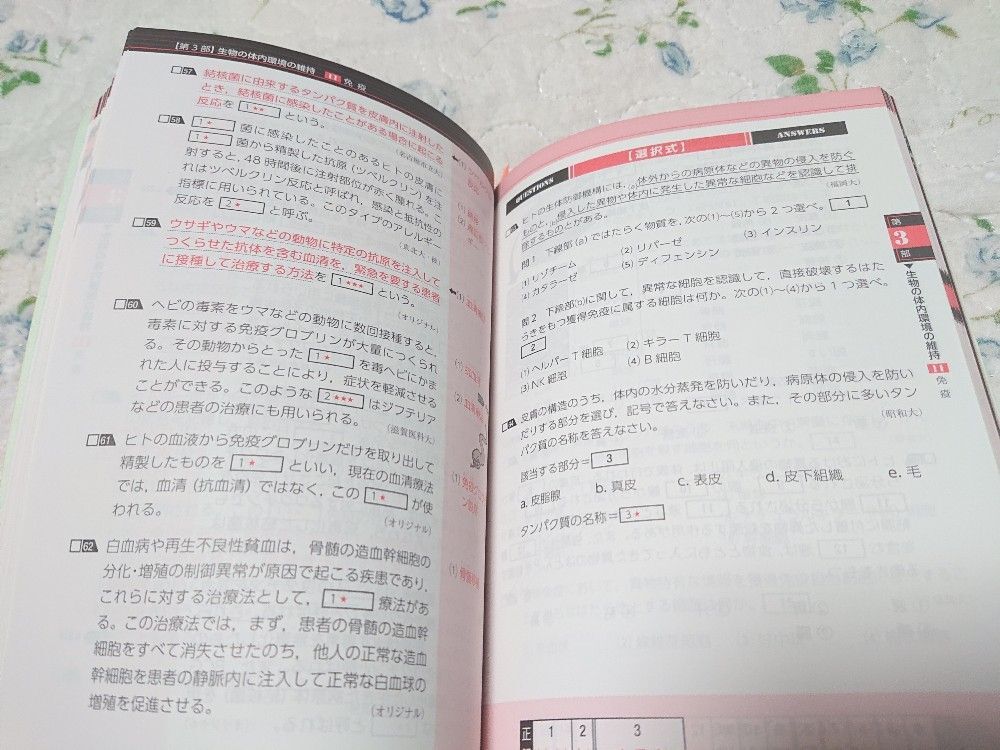 【第3部】生物の体内環境の維持 11 免疫
57 結核菌に由来するタンパク質を皮膚内に注射した
とき，結核菌に感染したことがある場合に起こる
反応を 1★★ という。
(名古屋市立大)
58 1★ 菌に感染したことのあるヒトの皮膚に
1★ 菌から精製した抗原（ツベルクリン）を注
射すると，48時間後に注射部位が赤く腫れる。こ
れはツベルクリン反応と呼ばれ，感染と抵抗性の
指標に用いられている。このタイプのアレルギー
反応を 2★ と呼ぶ。
59 ウサギやウマなどの動物に特定の抗原を注入して
つくらせた抗体を含む血清を，緊急を要する患者
に接種して治療する方法を 1★★★ という。
(オリジナル)
60 ヘビの毒素をウマなどの動物に数回接種すると，
毒素に対する免疫グロブリンが大量につくられ
る。その動物からとった 1★ を毒ヘビにかま
れた人に投与することにより，症状を軽減させる
ことができる。このような 2★★★ はジフテリア
などの患者の治療にも用いられる。
(滋賀医科大)
61 ヒトの血液から免疫グロブリンだけを取り出して
精製したものを 1★ といい，現在の血清療法
では，血清（抗血清）ではなく，この 1★ が使
われる。
(オリジナル)
62 白血病や再生不良性貧血は，骨髄の造血幹細胞の
分化・増殖の制御異常が原因で起こる疾患であり，
これらに対する治療法として， 1★ 療法があ
る。この治療法では，まず，患者の骨髄の造血幹
細胞をすべて消失させたのち，他人の正常な造血
幹細胞を患者の静脈内に注入して正常な白血球の
増殖を促進させる。
(オリジナル)
QUESTIONS 【選択式】 ANSWERS
ヒトの生体防御機構には，(a)体外からの病原体などの異物の侵入を防ぐ
ものと，(b)侵入した異物や体内に発生した異常な細胞などを認識して排
除するものとがある。
(福岡大)
問1 下線部(a)ではたらく物質を，次の(1)〜(5)から2つ選べ。 1
(1) リゾチーム (2) リパーゼ (3) インスリン
(4) カタラーゼ (5) ディフェンシン
問2 下線部(b)に関して，異常な細胞を認識して，直接破壊するはた
らきをもつ獲得免疫に属する細胞は何か。次の(1)〜(4)から1つ選べ。
2
(1) ヘルパーT細胞 (2) キラーT細胞
(3) NK細胞 (4) B細胞
64 皮膚の構造のうち，体内の水分蒸発を防いだり，病原体の侵入を防い
だりする部分を選び，記号で答えなさい。また，その部分に多いタン
パク質の名称を答えなさい。
(昭和大)
該当する部分＝ 3
a. 皮脂腺 b. 真皮 c. 表皮 d. 皮下組織 e. 毛
タンパク質の名称＝ 3★
第3部 生物の体内環境の維持 11 免疫
正 1 2 3